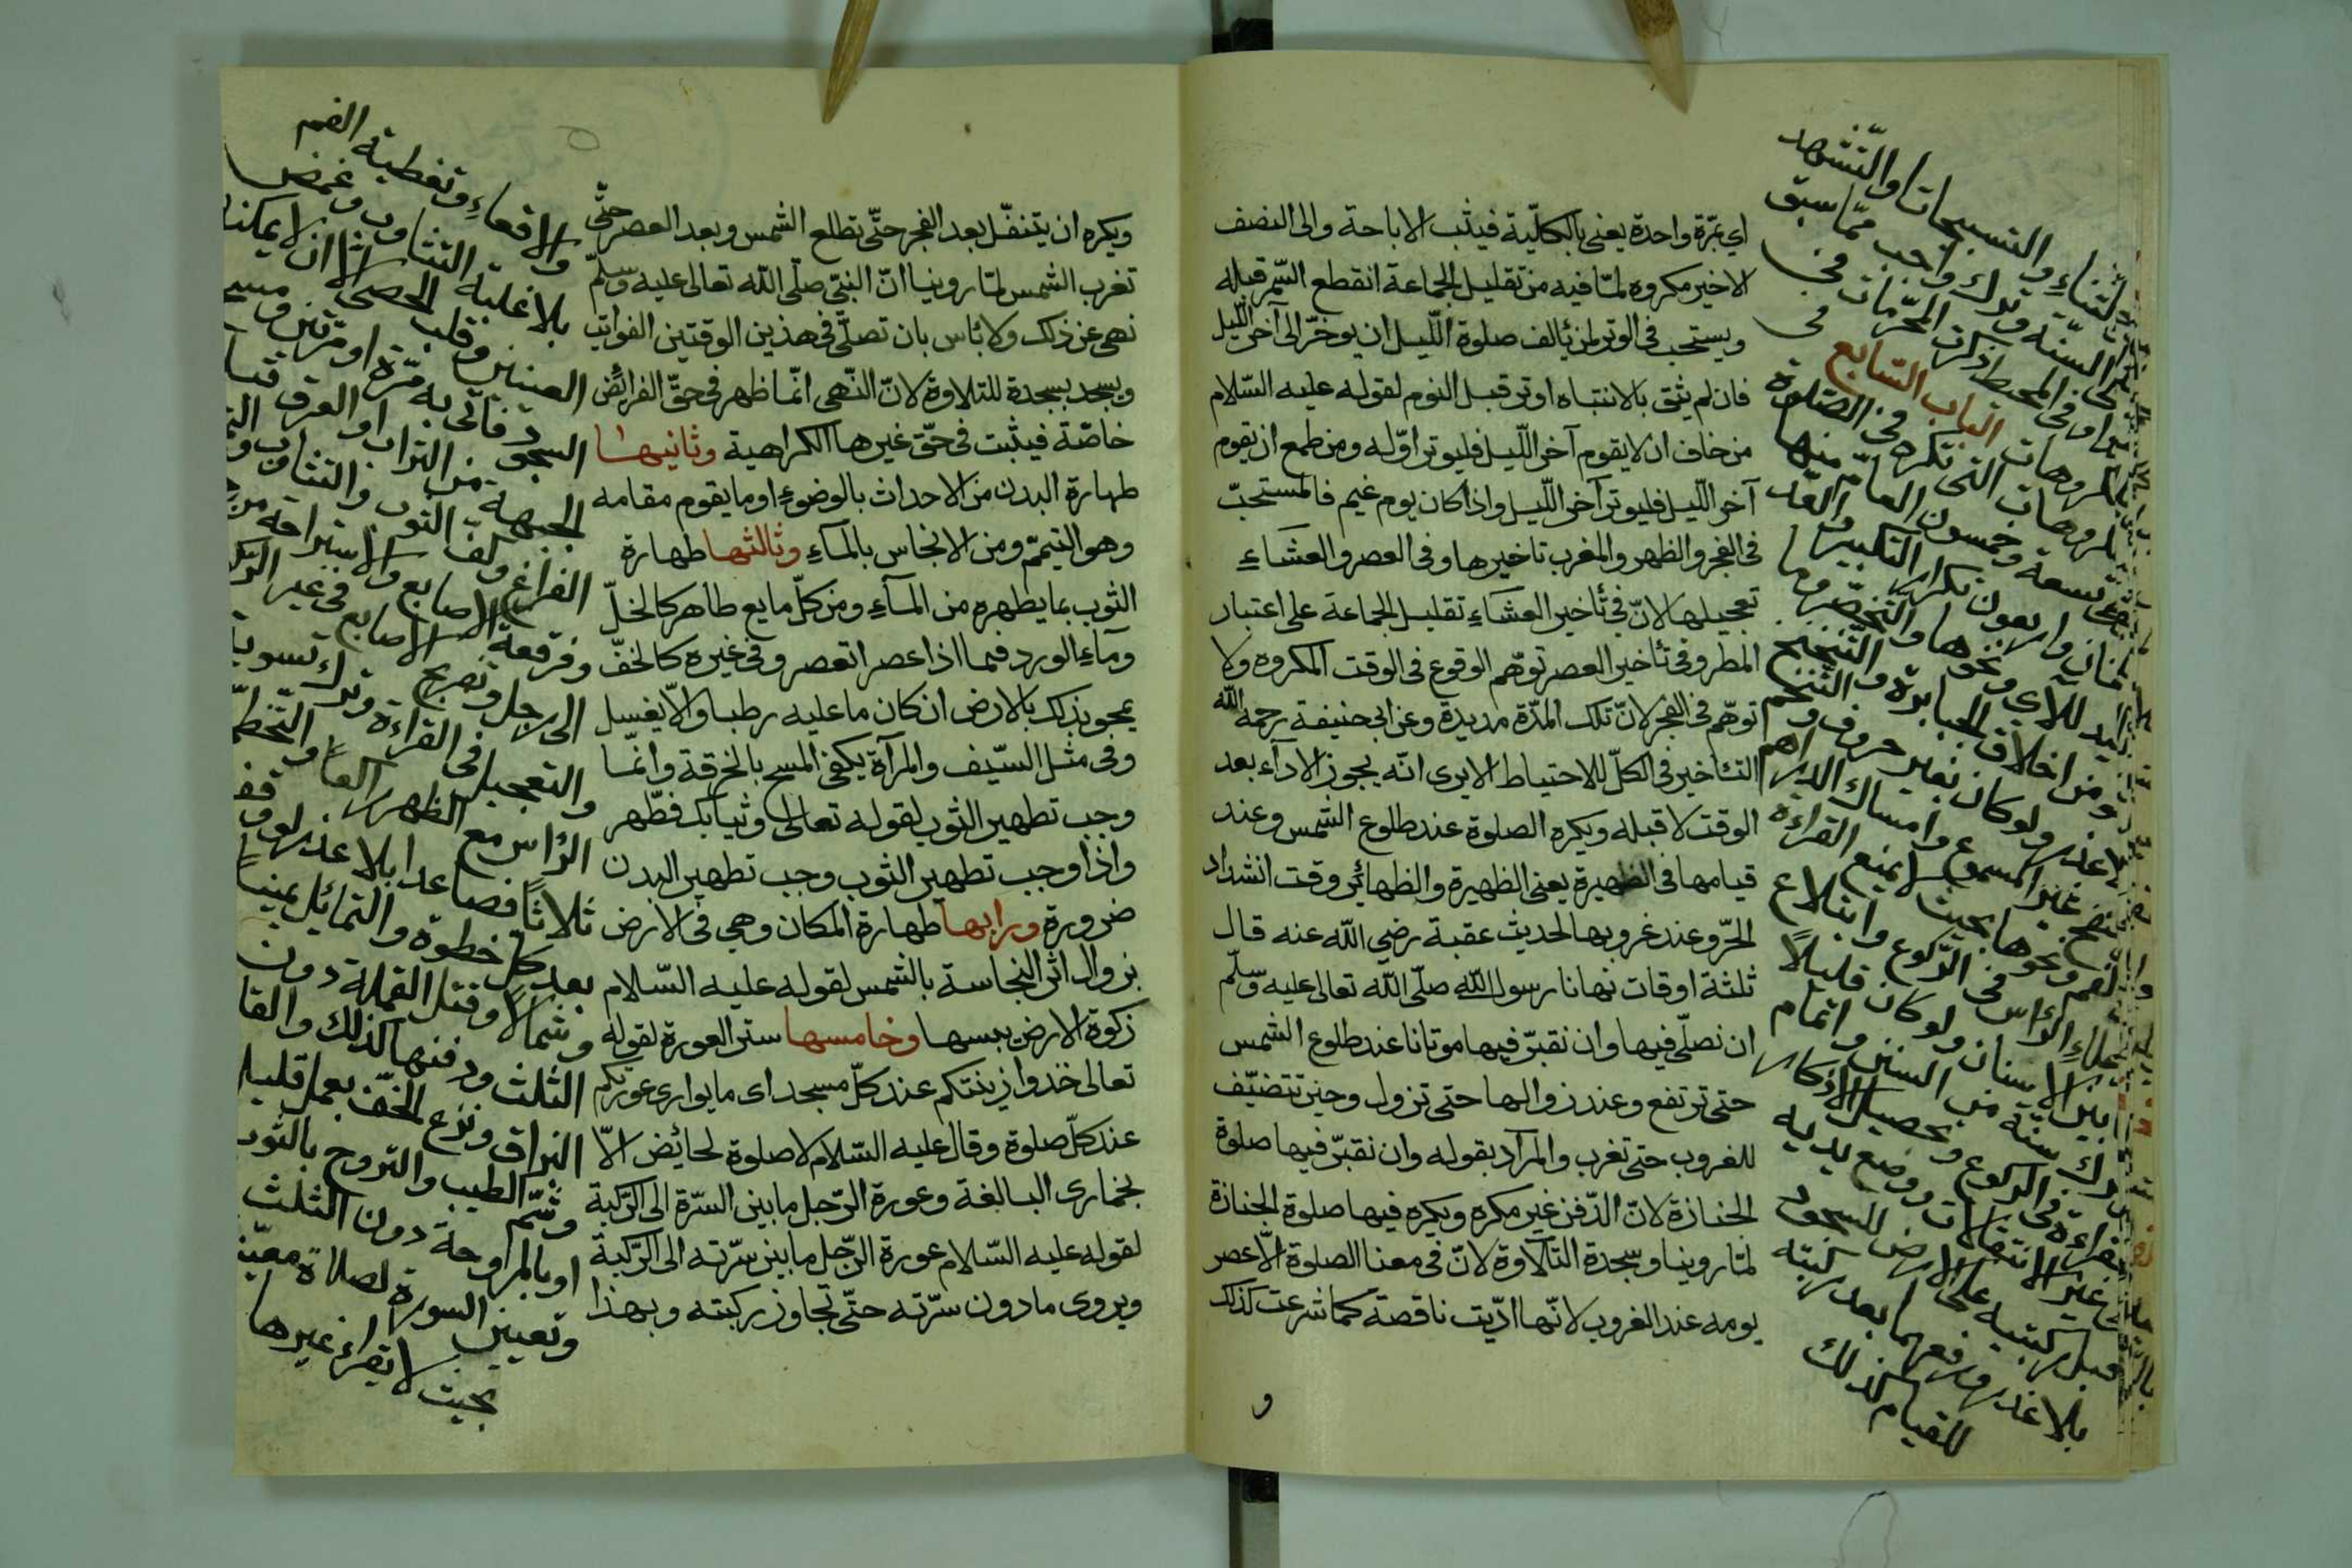 اي بمرّة واحدة يعنى بالكلّية فيثبت الاباحة والى النصف
الاخير مكروه لمّا فيه من تقليل الجماعة انقطع السّمر قبله
ويستحب فى الوتر لمن يألف صلوة اللّيل ان يوخّر الى آخر اللّيل
فان لم يثق بالانتباه اوتر قبل النوم لقوله عليه السّلام
من خاف ان لا يقوم آخر اللّيل فليوتر اوّله ومن طمع ان يقوم
آخر اللّيل فليوتر آخر اللّيل واذا كان يوم غيم فالمستحبّ
فى الفجر والظهر والمغرب تاخيرها وفى العصر والعشاءِ
تعجيلها لانّ فى تأخير العشاءِ تقليل الجماعة على اعتبار
المطر وفى تأخير العصر توهّم الوقوع فى الوقت المكروه ولا
توهّم فى الفجر لانّ تلك المدّة مديدة وعن ابى حنيفة رحمه الله
التئاخير فى الكلّ للاحتياط الا يرى انّه يجوز الادآء بعد
الوقت لا قبله ويكره الصلوة عند طلوع الشمس وعند
قيامها فى الظهيرة يعنى الظهيرة والظهائر وقت اشتداد
الحرّ وعند غروبها لحديث عقبة رضي الله عنه قال
ثلثة اوقات نهانا رسول الله صلّى الله تعالى عليه وسلّم
ان نصلّى فيها وان نقبّر فيها موتانا عند طلوع الشمس
حتى ترتفع وعند زوالها حتى تزول وحين تتضيّف
للغروب حتى تغرب والمرآد بقوله وان نقبّر فيها صلوة
الجنازة لانّ الدّفن غير مكره ويكره فيها صلوة الجنازة
لمّا روينا وسجدة التّلاوة لانّ فى معنا الصلوة الّا عصر
يومه عند الغروب لانّها ادّيت ناقصة كما شرعت كذلك
و
الثناءِ والتسبيحات او التّشهد
السنّة وترك واجب ممّا سبق
وفى المحيط ذكرت المحرّمات فى
الباب السّابع فى
المكروهات التى تكره فى الصّلوة
تسعة وخمسون العامّ منها
وأربعون تكرار التكبير والعدّ
للآي ونحوها والتخصّر وما
من اخلاق الجبابرة والتنحنح
ولو كان بغير حروف والتنخّم
غير المسموع وامساك الدراهم
ونحوها بحيث لا يمنع القراءة
الرّأس فى الركوع وابتلاع
بين الاسنان ولو كان قليلاً
ترك سنّة من السنن واتمام
القراءة فى الركوع وتحصيل الاذكار
فى غير الانتقالات ووضع يديه
قبل ركبتيه على الارض للسجود
بلا عذر ورفعهما بعد ركبتيه
للقيام كذلك
ويكره ان يتنفّل بعد الفجر حتّى تطلع الشمس وبعد العصر حتّى
تغرب الشمس لمّا روينا انّ النبيّ صلّى الله تعالى عليه وسلّم
نهى عن ذلك ولا بأس بان تصلّى فى هذين الوقتين الفوائت
ويسجد بسجدة للتلاوة لانّ النّهى انّما ظهر فى حقّ الفرائض
خاصّة فيثبت فى حقّ غيرها الكراهية وثانيها
طهارة البدن من الاحداث بالوضوءِ او ما يقوم مقامه
وهو التيمّم ومن الانجاس بالمآءِ وثالثها طهارة
الثوب بما يطهره من المآءِ ومن كلّ مايع طاهر كالخلّ
ومآءِ الورد فيما اذا عصر انعصر وفى غيره كالخفّ
يمحو بذلك بالارض ان كان ما عليه رطبا والّا يغسل
وفى مثل السّيف والمرآة يكفى المسح بالخرقة وانّما
وجب تطهير الثوب لقوله تعالى وثيابك فطّهر
واذا وجب تطهير الثوب وجب تطهير البدن
ضرورة ورابها طهارة المكان وهي فى الارض
بزوال اثر النجاسة بالشمس لقوله عليه السّلام
زكوة الارض يبسها وخامسها ستر العورة لقوله
تعالى خذوا زينتكم عند كلّ مسجد اى ما يوارى عورتكم
عند كلّ صلوة وقال عليه السّلام لا صلوة لحائض الّا
بخمارى البالغة وعورة الرّجل ما بين السّرة الى الرّكبة
لقوله عليه السّلام عورة الرّجل ما بين سرّته الى الرّكبة
ويروى ما دون سرّته حتّى تجاوز ركبته وبهذا
والاقعاءِ وتغطية الفم
بلا غلبة التثاوب وغمض
العينين وقلب الحصى الا ان لا يمكنه
السجود فأتى به مرّة او مرّتين ومسح
الجبهة من التراب او العرق قبل
الفراغ وكفّ الثوب والتثاوب و
وفرقعة الاصابع والاستراحة من
الى رجل وتفريج الاصابع فى غير الركوع
والتعجيل فى القراءة وترك تسوية
الرّأس مع الظهر راكعاً والتخطّى
ثلاثاً فصاعدا بلا عذر لو وقف
بعد كلّ خطوة والتمائل يميناً
وشمالاً وقتل القملة دون
الثلث ودفنها كذلك والقاء
البزاق ونزع الخفّ بعمل قليل
وشمّ الطيب والتروح بالثوب
او بالمروحة دون الثلث
وتعيين السورة لصلاة معيّنة
بحيث لا يقراء غيرها